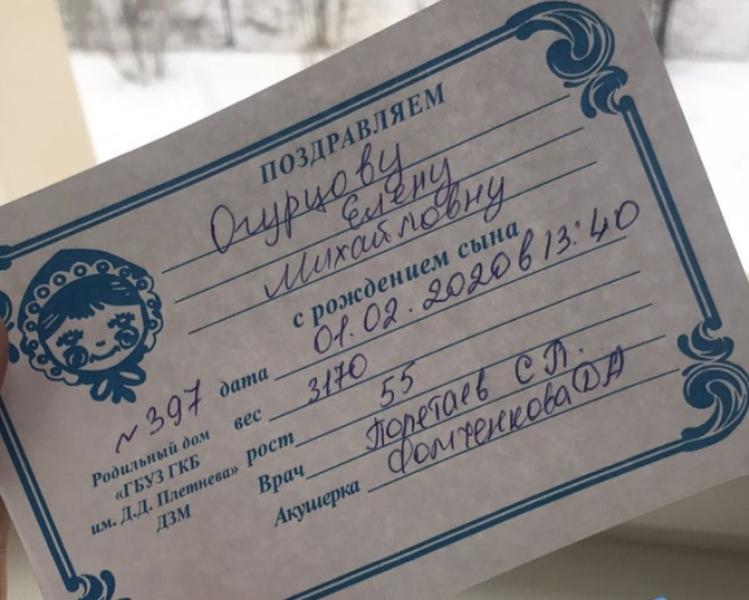 ПОЗДРАВЛЯЕМ
Огурцову
Елену
Михайловну
с рождением сына
№397 дата 01.02.2020 в 13:40
вес 3170
рост 55
Врач С.П.
Акушерка Фомченкова ДА
Родильный дом
«ГБУЗ ГКБ
им. Д.Д. Плетнева»
ДЗМ